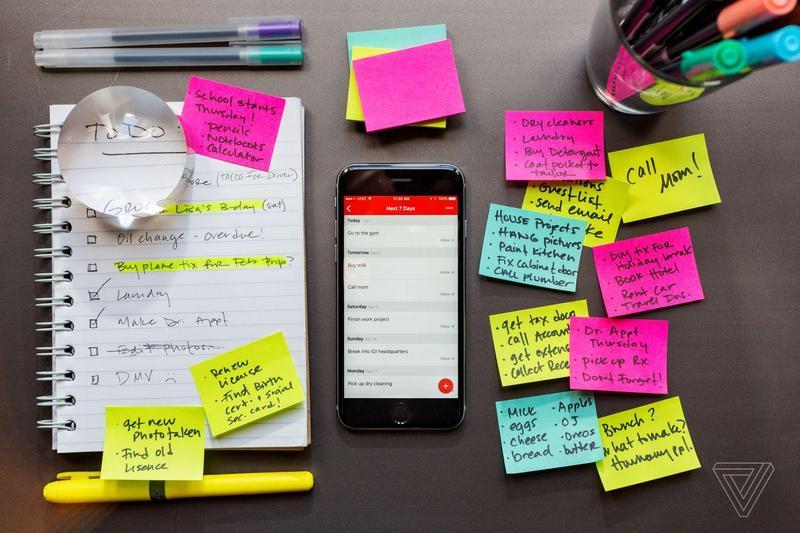 School starts
Thursday!
• Pencils
• Notebooks
Calculator
TO DO
(TACOS FOR DINNER)
GRO
Lisa's B-day (sat)
Oil change - overdue!
Buy plane tix for Feb trip?
Laundry
Make Dr. Appt
Edit photos
DMV :(
• Renew
License
• Find Birth
cert. + social
sec. card!
• get new
Photo taken
• Find old
License
AT&T
11:50 AM
100%
Next 7 Days
Today
Go to the gym
Inbox
Tomorrow
Buy milk
Inbox
Call mom
Inbox
Saturday
Finish work project
Inbox
Sunday
Break into IOI headquarters
Inbox
Monday
Pick up dry cleaning
+
• Dry cleaners
• Laundry
• Buy Detergent
• Coat pocket to
tailor
Call
Mom!
Guest List
• send email
House Projects
• Hang pictures
• Paint kitchen
• Fix cabinet door
• call plumber
• Buy tix for
Holiday break
• Book Hotel
• Rent Car
• Travel Ins.
• get tax docs
• call Account
• get extens
• collect Rece
• Dr. Appt
Thursday
• pick up Rx
• Don't Forget!
• Milk
• eggs
• cheese
• bread
• Apples
• OJ
• Oreos
• butter
Brunch?
What to make?
How many ppl.